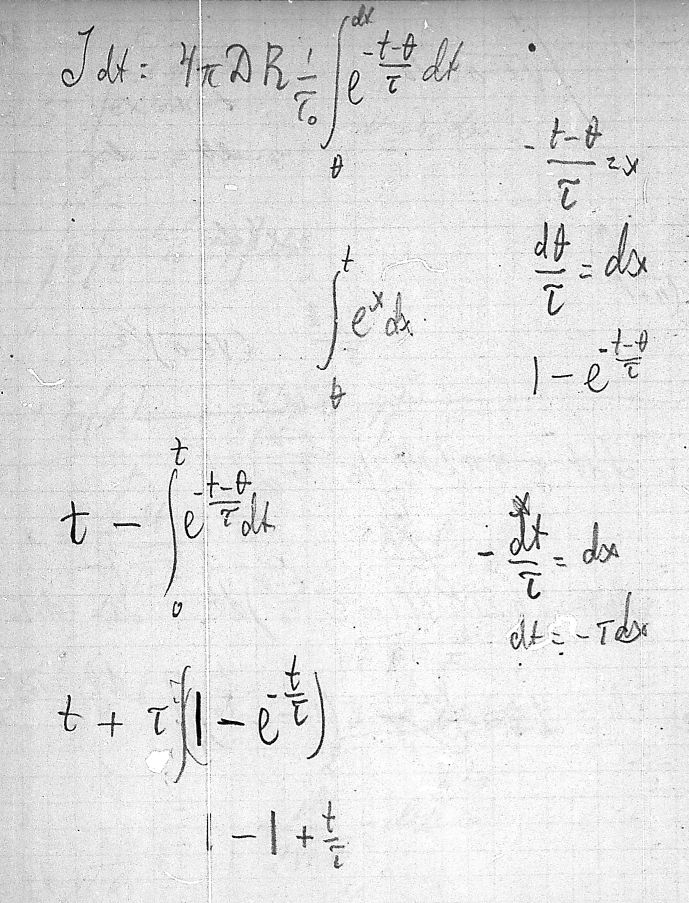 J dt = 4πDR 1/τ₀ ∫_θ^{dx} e^{-(t-θ)/τ} dt
-(t-θ)/τ = x
dθ/τ = dx
∫_θ^t e^x dx
1 - e^{-(t-θ)/τ}
t - ∫_0^t e^{-(t-θ)/τ} dt
- dt/τ = dx
dt = -τ dx
t + τ(1 - e^{-t/τ})
1 - 1 + t/τ